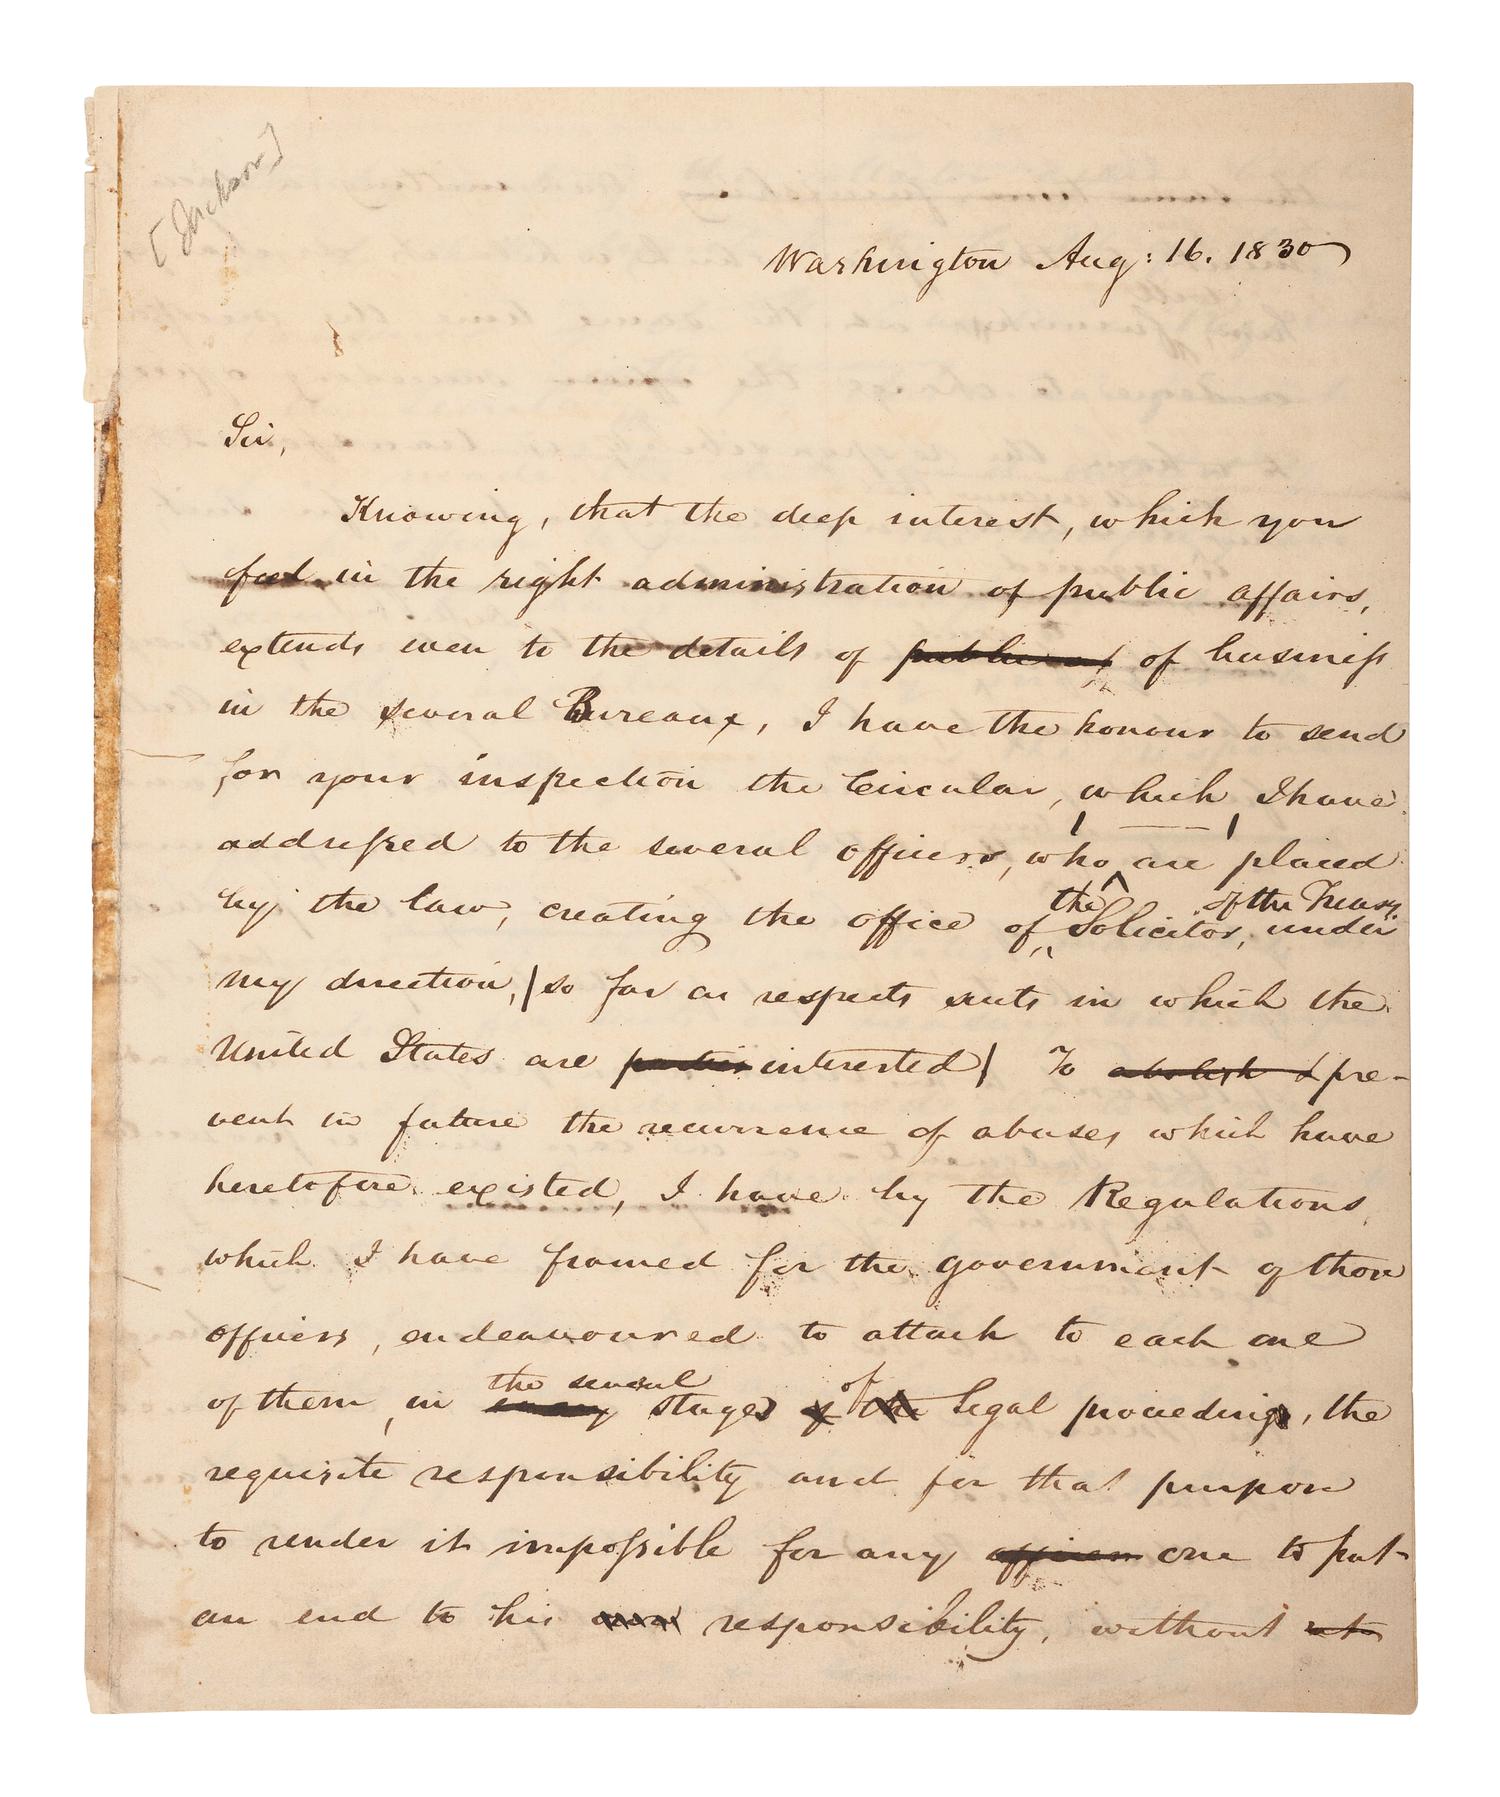 [Jackson]
Washington Aug: 16. 1830
Sir,
Knowing, that the deep interest, which you
feel in the right administration of public affairs,
extends even to the details of public of of business
in the several Bureaux, I have the honour to send
for your inspection the Circular, which I have
addressed to the several officers, who are placed
by the law, creating the office of the Solicitor, of the Treasy. under
my direction, | so far as respects suits in which the
United States are parties interested | To abolish & pre-
vent in future the recurrence of abuses which have
heretofore existed, I have by the Regulations,
which I have framed for the government of those
officers, endeavoured to attach to each one
of them, in every the several stages of the of legal proceedings, the
requisite responsibility and for that purpose
to render it impossible for any officer one to put
an end to his own responsibility, without